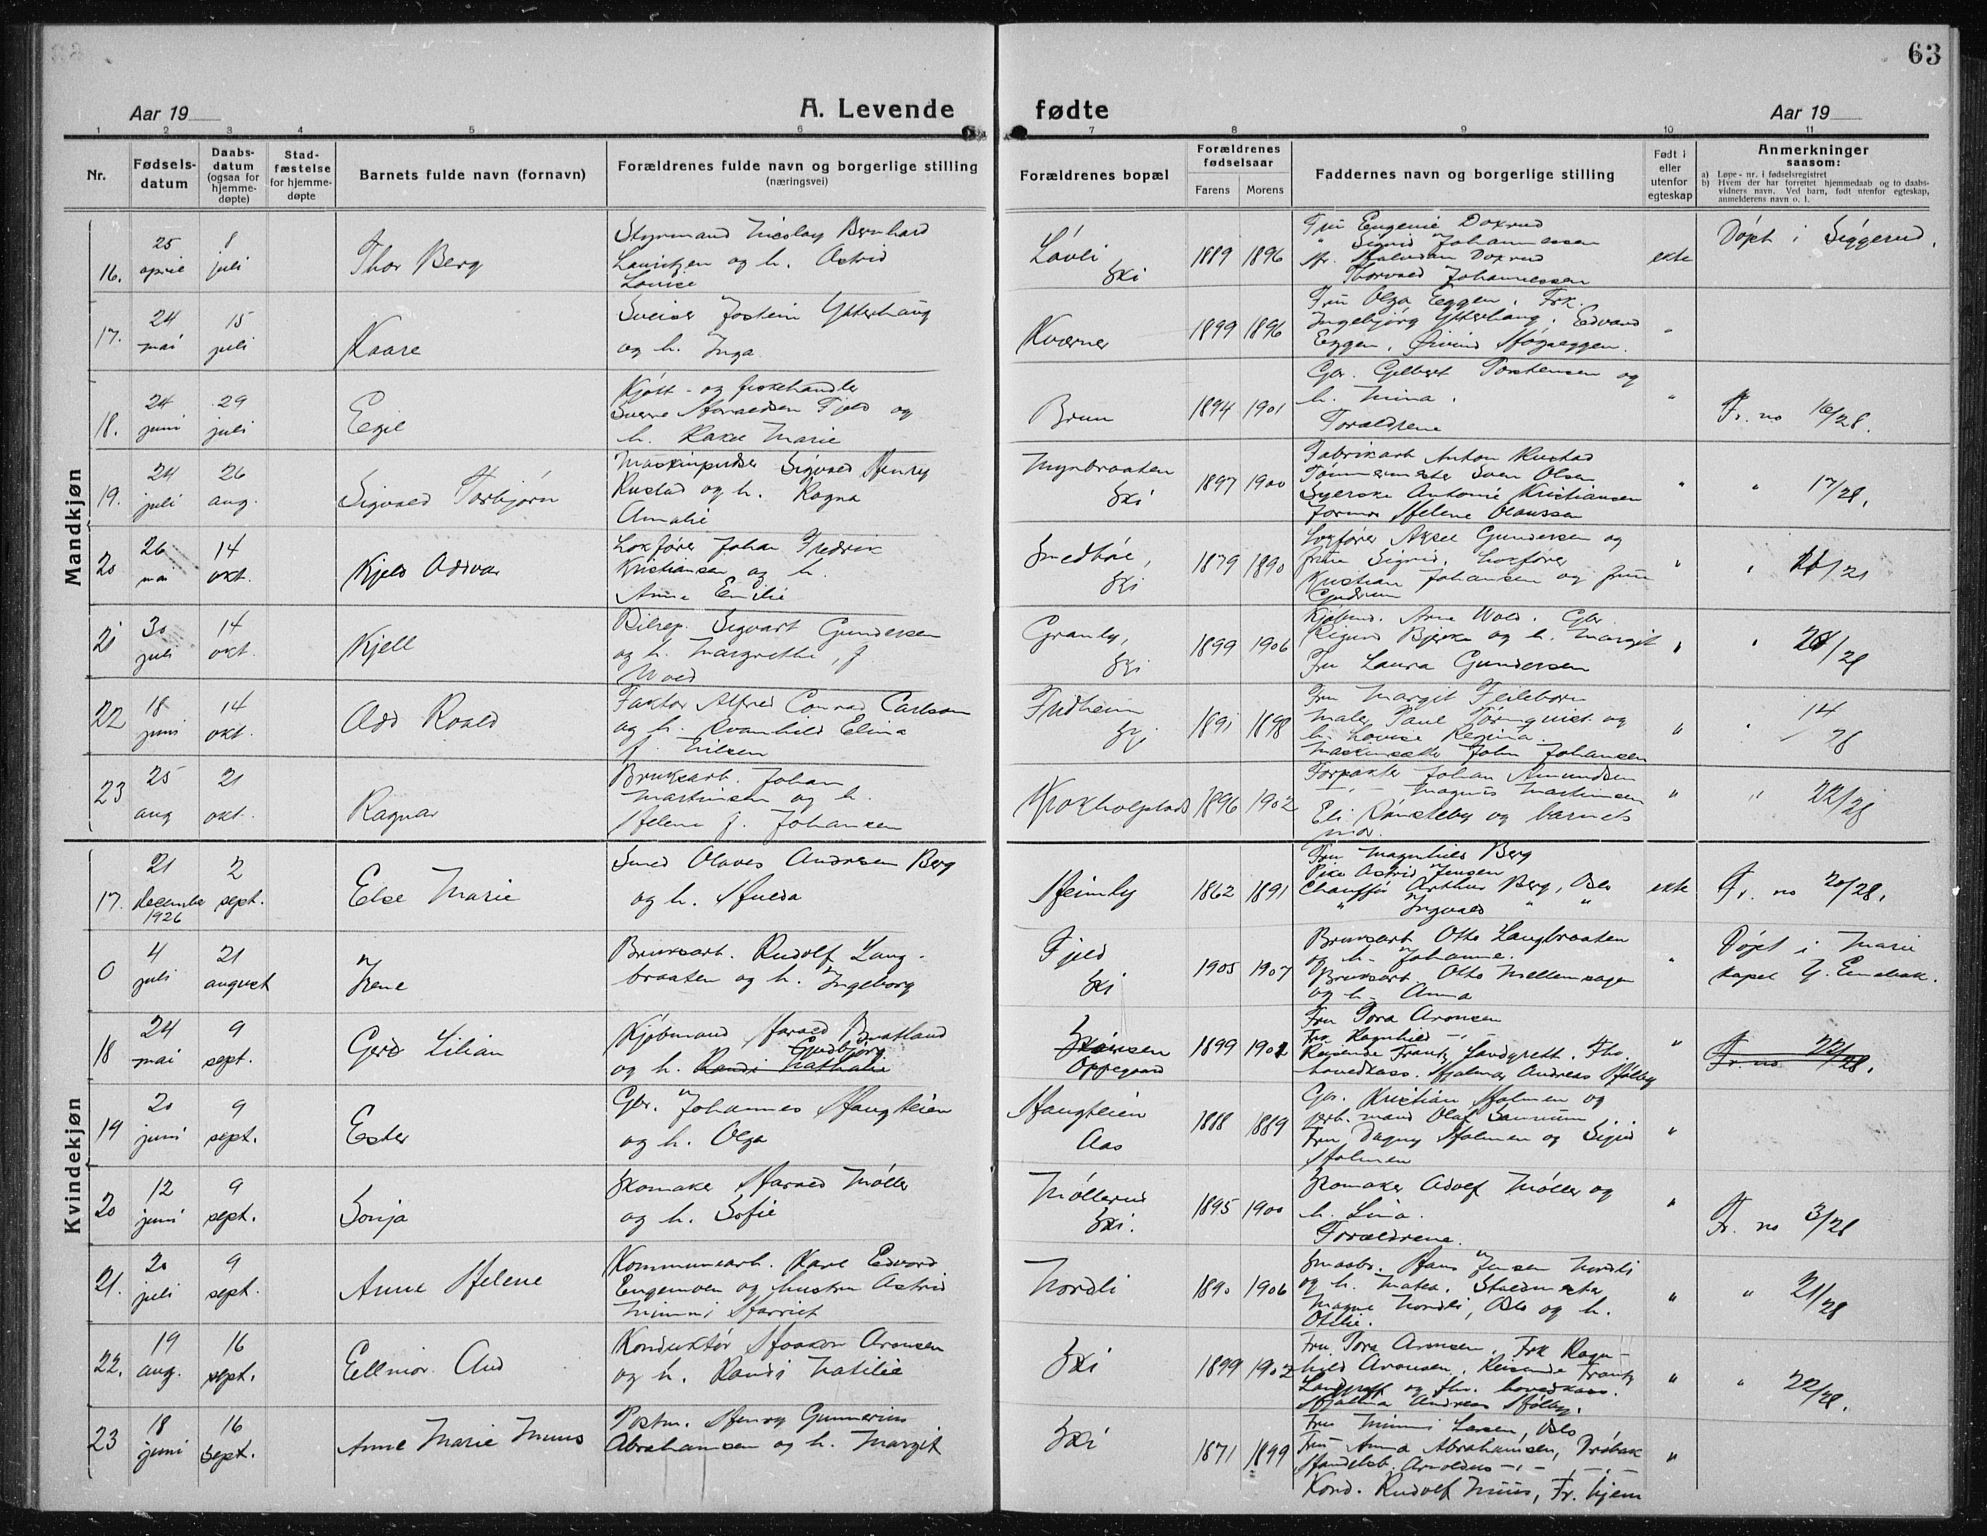 63
Aar 19
A. Levende
fødte
Aar 19
1 2 3 4 5 6 7 8 9 10 11
Nr.
Fødsels-
datum
Daabs-
datum
(ogsaa for
hjemme-
døpte)
Stad-
fæstelse
for hjemme-
døpte
Barnets fulde navn (fornavn)
Forældrenes fulde navn og borgerlige stilling
(næringsvei)
Forældrenes bopæl
Forældrenes
fødselsaar
Farens
Morens
Faddernes navn og borgerlige stilling
Født i
eller
utenfor
egteskap
Anmerkninger
saasom:
a) Løpe-nr. i fødselsregistret
b) Hvem der har forrettet hjemmedaab og to daabs-
vidners navn. Ved barn, født utenfor egteskap,
anmelderens navn o. l.
Mandkjøn
16. 25 april 8 juli
Thor Berg
Styrmand Nicolay Bernhard
Lauritzen og h. Astrid
Louise
Løvli
Ski
1889 1896
Fru Eugenie Doxrud
" Sigrid Johannessen
Hr. Halvdan Doxrud
Thorvald Johannessen
ekte
Døpt i Siggerud.
17. 24 mai 15 juli
Kaare
Sveiser Jostein Ytterhaug
og h. Inga
Kværner
1899 1896
Fru Olga Eggen. Frk.
Ingebjørg Ytterhaug. Edvard
Eggen. Øivind Høgseggen.
"
18. 24 juni 29 juli
Egil
Kjøtt- og fiskehandler
Sverre Haraldsen Fjeld og
h. Rakel Marie
Brun
1894 1901
Gbr. Gilbert Torstensen og
h. Mina.
Foreldrene
"
Fr. no 16/28.
19. 24 juli 26 aug.
Sigvald Torbjørn
Maskinpudser Sigvald Henry
Rustad og h. Ragna
Amalie
Myrbraaten
Ski
1897 1900
Fabrikarb Anton Rustad
Tømmermester Sven Olsen
Syerske Antonie Kristiansen
Jormor Helene Olaussen
"
" 17/28.
20 26 mai 14 okt.
Kjeld Oddvar
Lokfører Johan Fredrik
Kristiansen og h.
Anna Emilie
Smedbøl,
Ski
1879 1890
Lokfører Aksel Gundersen og
frue Sigrid, Lokfører
Kristian Johansen og frue
Gudrun
"
21 30 juli 14 okt.
Kjell
Bilrep. Sigvart Gundersen
og h. Margrethe, f.
Wold
Granly,
Ski
1899 1906
Kjøbmd. Arne Wold. Gbr.
Sigurd Bjerke og h. Margit
Fru Laura Gundersen
"
22 18 juni 14 okt.
Odd Roald
Faktor Alfred Conrad Carlson
og h. Svanhild Elina
f. Nilsen
Fridheim
Ski
1891 1898
Fru Margit Feileborn
Maler Paul Törnquist og
h. Lovise Regina.
Maskinsetter John Johansen
"
" 14/28
23 25 aug 21 okt.
Ragnar
Bruksarb. Johan
Martinsen og h.
Helene f. Johansen
Krokholplads
1896 1902
Forpakter Johan Amundsen
— " — Magnus Martinsen
Eli Rønsleby og barnets
mor.
"
" 22/28
Kvindekjøn
17. 21 december 1926 2 sept.
Else Marie
Smed Olaves Andresen Berg
og h. Hulda
Heimly
1862 1891
Fru Magnhild Berg
Pike Astrid Jensen
Chauffør Arthur Berg, Oslo
" Ingvald " "
ekte
Fr. no 20/28.
0 4 juli 21 august
Irene
Bruksarb. Rudolf Lang-
braaten og h. Ingeborg
Fjeld
Ski
1905 1907
Bruksarb Otto Langbraaten
og h. Johanne.
Bruksarb Otto Mellemhagen
og h. Anna
"
Døpt i Marie
kapel Y. Enebak.
18 24 mai 9 sept.
Gerd Lilian
Kjøbmand Harald Bratland
og h. Randi Nathalie Gudbjørg
Oppegaard
1899 1902
Fru Tora Aronsen
Frk Ragnhild — " —
Reisende Frantz Landgrett. Fhv.
hovedkass. Hjalmar Andreas Hølby
"
Fr. no 22/28.
19 20 juni 9 sept.
Ester
Gbr. Johannes Haugteien
og h. Olga
Haugteien
Aas
1888 1889
Gbr. Kristian Holmen og
arb. mand Olaf Sanrum
Fru Dagny Holmen og Sigrid
Holmen
"
20 12 juni 9 sept.
Sonja
Skomaker Harald Møller
og h. Sofie
Møllerud
Ski.
1895 1900
Skomaker Adolf Møller og
h. Lina.
Foreldrene.
"
Fr. no 3/28
21. 20 juli 9 sept.
Anne Helene
Kommunearb. Kare Edvard
Engemoen og hustru Astrid
Mimmi Harriet
Nordli
1890 1906
Smaabr. Hans Jensen Nordli
og h. Matea. Staldmester
Magne Nordli, Oslo og h.
Otilie.
"
" 21/28
22. 19 aug. 16 sept.
Ellinor Aud
Konduktør Haakon Aronsen
og h. Randi Natilie
Ski
1899 1902
Fru Tora Aronsen. Frk Ragn-
hild Aronsen. Reisende Frantz
Landgrett og fhv. hovedkass.
Hjalmar Andreas Hølby.
"
" 22/28.
23 18 juni 16 sept.
Anne Marie Muus
Postm. Henry Gunnerius
Abrahamsen og h. Margit
Ski
1871 1899
Fru Mimmi Larsen, Oslo
Fru Anna Abrahamsen, Drøbak
Handelsb. Arvoldus — " — — " —
Kond. Rudolf Muus, Fr. hjem
"